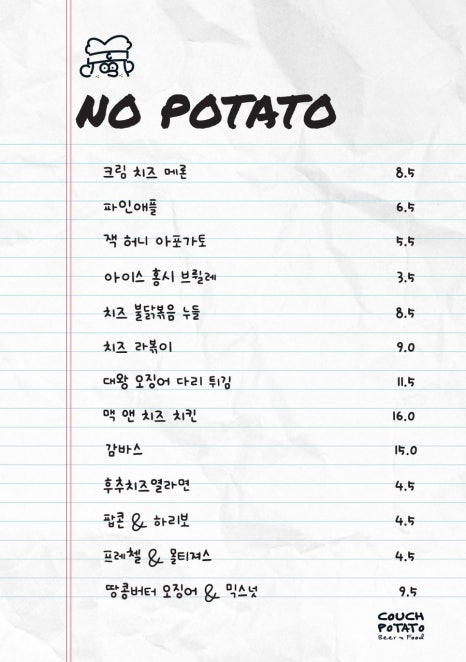 NO POTATO
크림 치즈 메론 8.5
파인애플 6.5
잭 허니 아포가토 5.5
아이스 홍시 브륄레 3.5
치즈 불닭볶음 누들 8.5
치즈 라볶이 9.0
대왕 오징어 다리 튀김 11.5
맥 앤 치즈 치킨 16.0
감바스 15.0
후추치즈열라면 4.5
팝콘 & 하리보 4.5
프레첼 & 몰티져스 4.5
땅콩버터 오징어 & 믹스넛 9.5
COUCH
POTATO
Beer n Food